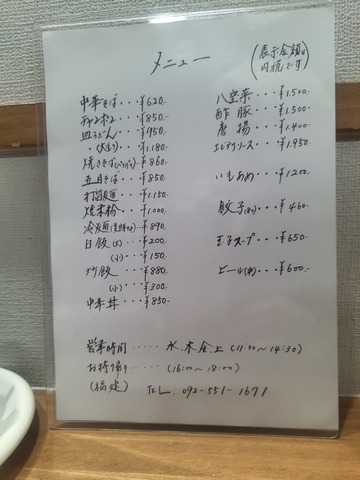 メニュー
(表示金額は内税です)
中華そば・・・¥620.-
チャンポン・・・¥850.-
皿うどん・・・¥950.-
〃(大もり)・・・¥1.180-
焼きそば(バリバリ)・・¥860
五目そば・・・¥850.
打滷麺・・・¥1.150
焼米粉・・・¥1.000
冷麺(夏期のみ)・・¥890
白飯(大)・・・¥200
(小)・・・¥150
炒飯・・・・¥880
(小)・・・¥300
中華丼・・・¥850.-
八宝菜・・・¥1.500-
酢豚・・・¥1.500
唐揚・・・¥1.400-
エビチリソース・・¥1.950
いもあめ・・・¥1200
餃子(8ヶ)・・¥460
玉子スープ・・¥650
ビール(中)・・・¥600.-
営業時間・・・・・水.木.金.土(11:30~14:30)
お持帰り・・・・・(16:00~18:00)
(福建) TEL. 092-551-1671